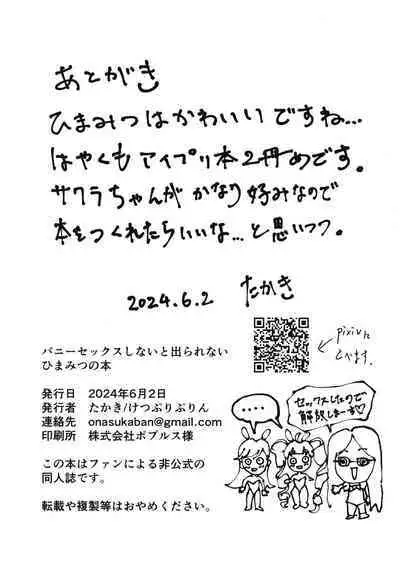 あとがき
ひまみつはかわいいですね...
はやくもアイプリ本2冊めです。
サクラちゃんが かなり好みなので
本をつくれたらいいな...と思いつつ。
2024.6.2 たかき
pixivに
とべます。
バニーセックスしないと出られない
ひまみつの本
発行日 2024年6月2日
発行者 たかき/けつぷりぷりん
連絡先 onasukaban@gmail.com
印刷所 株式会社ポプルス様
この本はファンによる非公式の
同人誌です。
転載や複製等はおやめください。
....
セックスしたので
解散しまーす♡